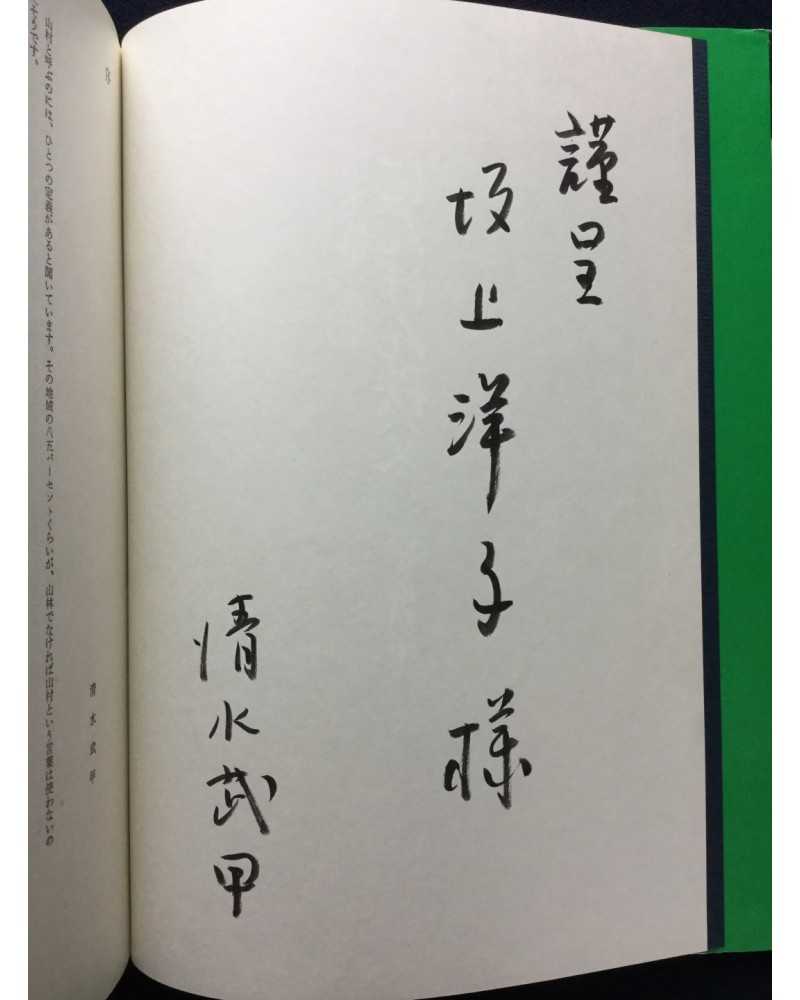 謹呈
坂上洋子様
清水武甲
清水武甲
山村と呼ぶのには、ひとつの定義があると聞いています。その地域の八五パーセントくらいが、山林でなければ山村という言葉は使わないの
そうです。